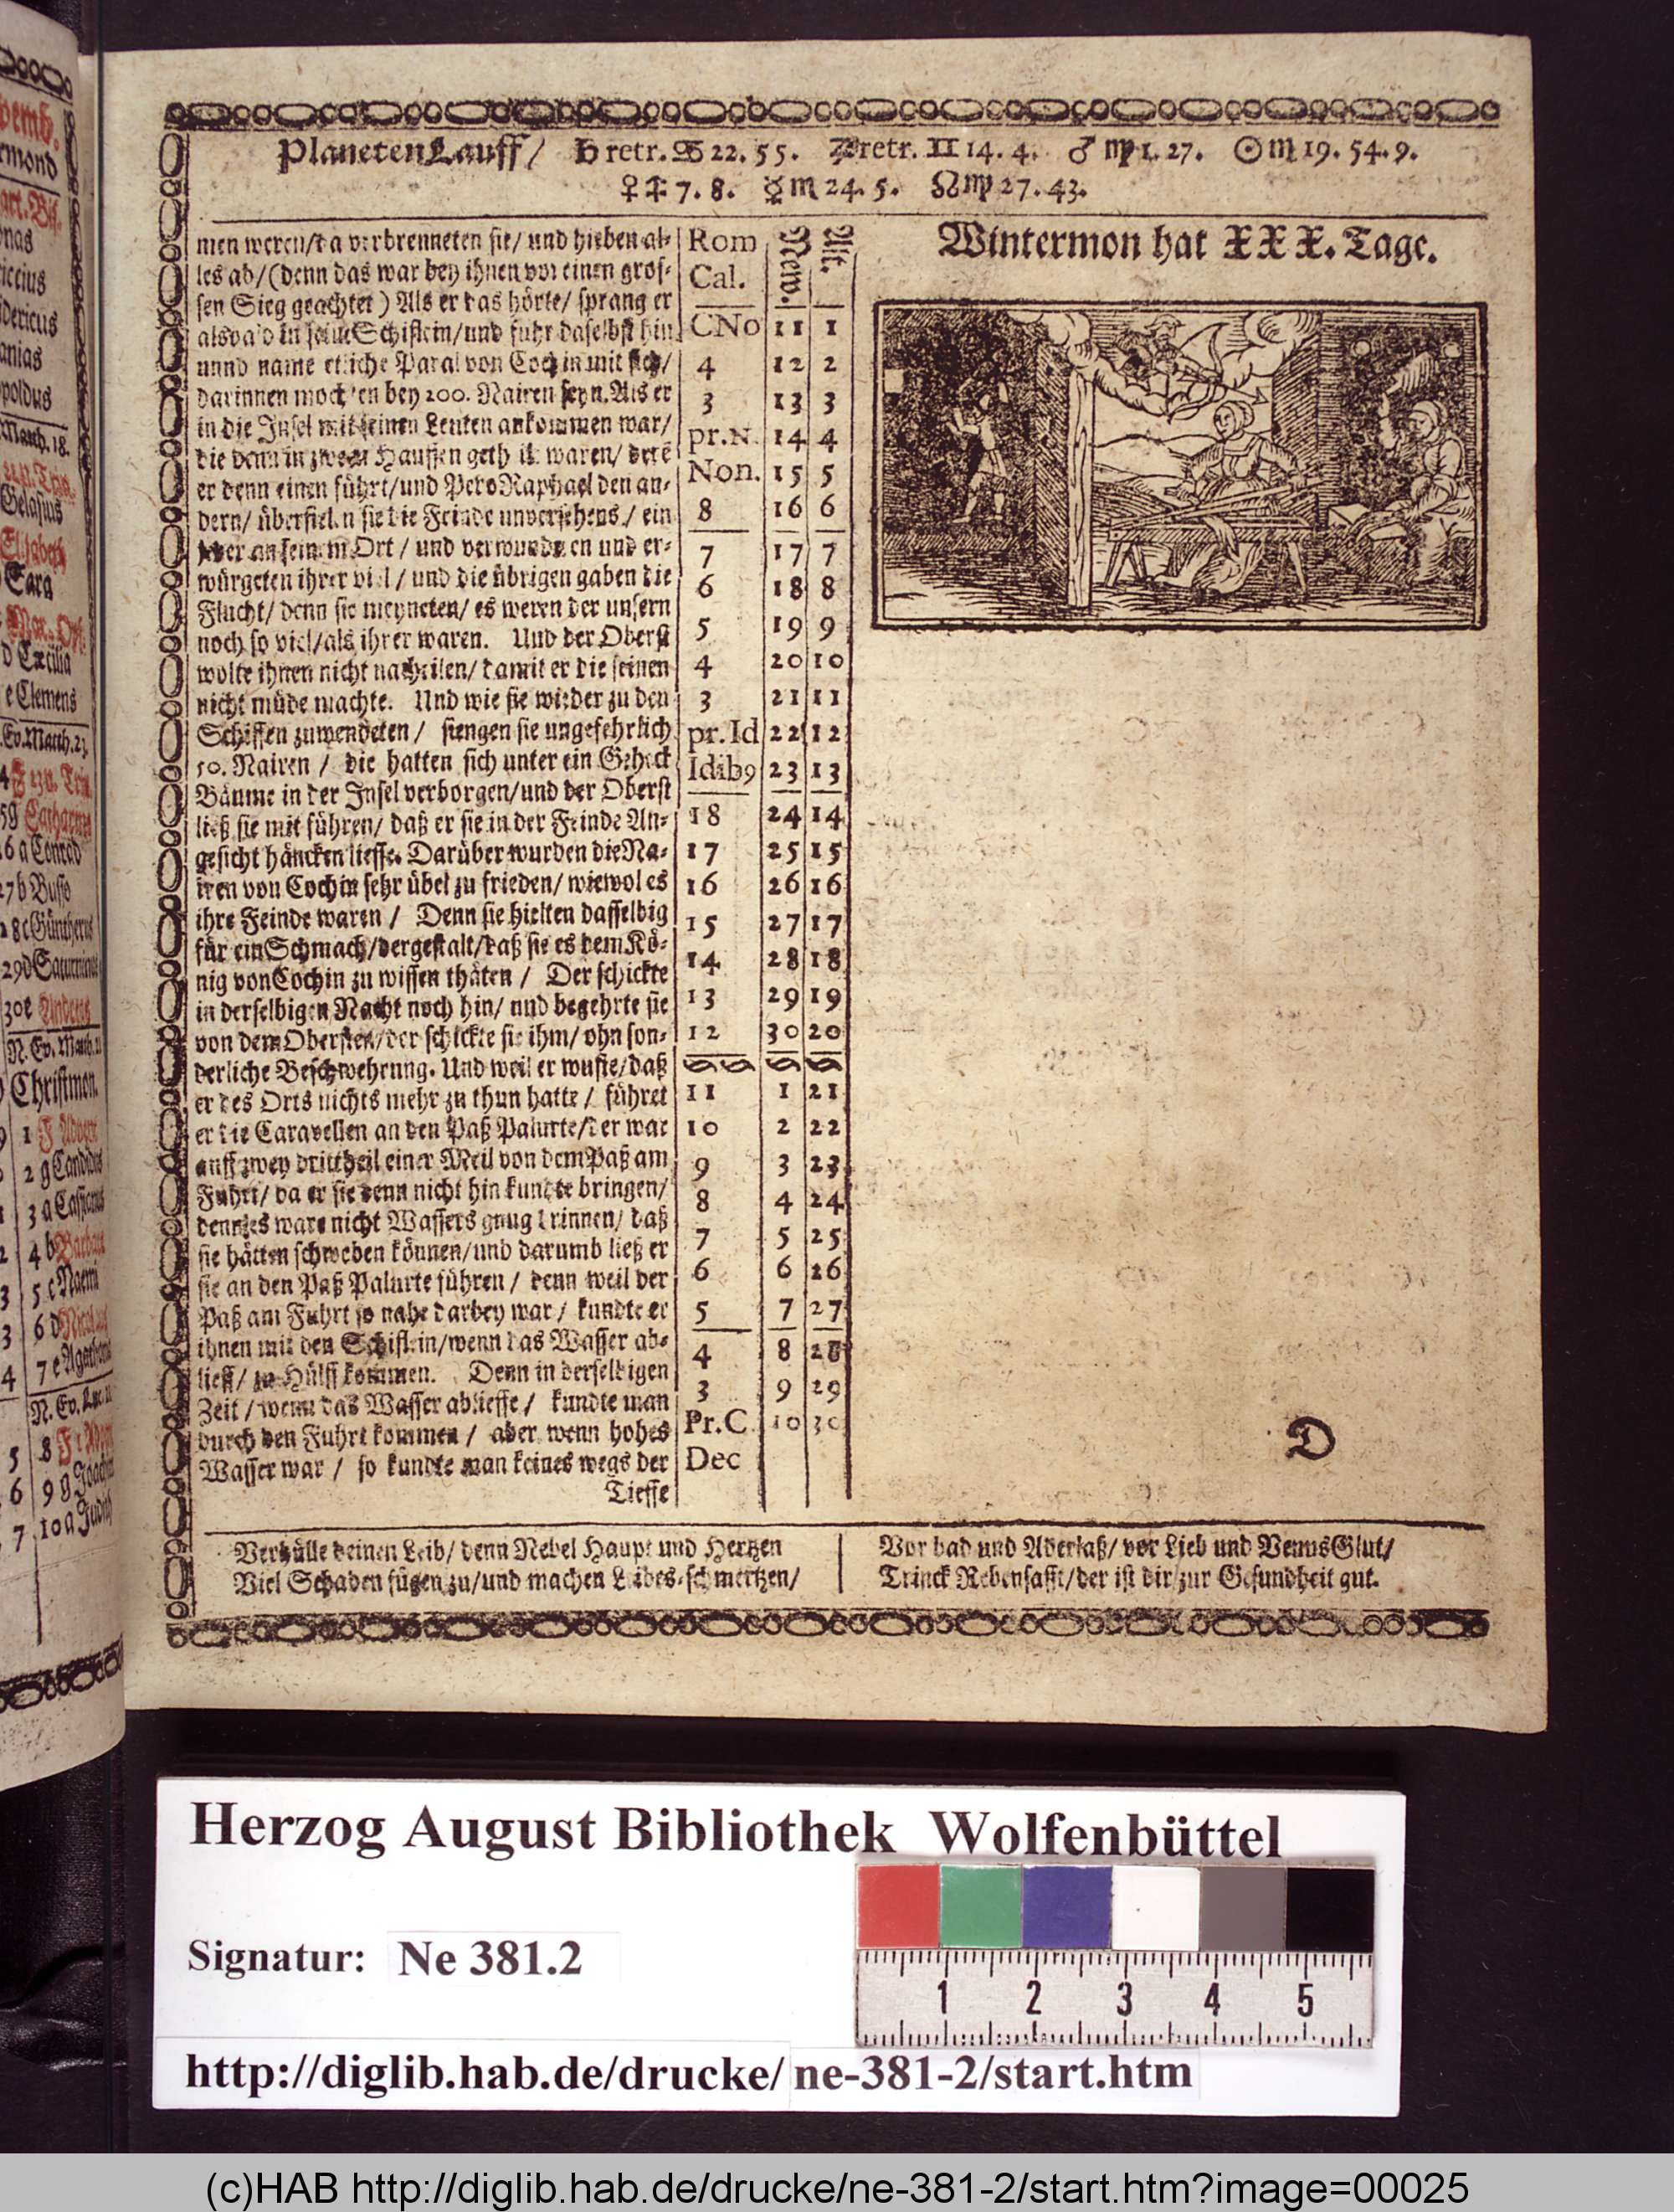 PlanetenLauff / ♄ retr. ♋ 22. 55. ♃ retr. ♊ 14. 4. ♂ ♍ 1. 27. ☉ ♏ 19. 54. 9.
♀ ♐ 7. 8. ☿ ♏ 24. 5. ☊ ♍ 27. 43.
men weren/da verbrenneten sie/ und hieben al-
les ab/(denn das war bey ihnen vor einen gros-
sen Sieg geachtet) Als er das hörte/ sprang er
alsbald in seine Schifflein/und fuhr daselbst hin
unnd name etliche Paral von Cochin mit sich/
darinnen mochten bey 200. Nairen seyn. Als er
in die Insel mit seinen Leuten ankommen war/
die denn in zween Hauffen getheilt waren/ derē
er denn einen führt/und Pero Raphael den an-
dern/ überfielen sie die Feinde unversehens/ ein
jeder an seinem Ort / und verwundeten und er-
würgeten ihrer viel / und die übrigen gaben die
Flucht/ denn sie meyneten/ es weren der unsern
noch so viel/als ihrer waren. Und der Oberst
wolte ihnen nicht nacheilen/ damit er die seinen
nicht müde machte. Und wie sie wieder zu den
Schiffen zuwendeten / fiengen sie ungefehrlich
10. Nairen / die hatten sich unter ein Geheck
Bäume in der Insel verborgen/und der Oberst
ließ sie mit führen/ daß er sie in der Feinde An-
gesicht häncken liesse. Darüber wurden die Na-
iren von Cochin sehr übel zu frieden/ wiewol es
ihre Feinde waren / Denn sie hielten dasselbig
für ein Schmach/dergestalt/daß sie es dem Kö-
nig von Cochin zu wissen thäten / Der schickte
in derselbigen Nacht noch hin/ und begehrte sie
von dem Obersten/der schickte sie ihm/ ohn son-
derliche Beschwehrung. Und weil er wuste/daß
er des Orts nichts mehr zu thun hatte / führet
er die Caravellen an den Paß Palurte/der war
auff zwey drittheil einer Meil von dem Paß am
Fuhrt/ da er sie denn nicht hin kundte bringen/
denn es ware nicht Wassers gnug drinnen/ daß
sie hätten schweben können/und darumb ließ er
sie an den Paß Palurte führen / denn weil der
Paß am Fuhrt so nahe darbey war / kundte er
ihnen mit den Schiflein/wenn das Wasser ab-
lieff/ zu Hülff kommen. Denn in derselbigen
Zeit / wenn das Wasser ablieffe / kundte man
durch den Fuhrt kommen / aber wenn hohes
Wasser war / so kundte man keines wegs der
Tieffe
Rom Cal. New. Alt.
CNo 11 1
4 12 2
3 13 3
pr.N. 14 4
Non. 15 5
8 16 6
7 17 7
6 18 8
5 19 9
4 20 10
3 21 11
pr.Id 22 12
Idib9 23 13
18 24 14
17 25 15
16 26 16
15 27 17
14 28 18
13 29 19
12 30 20
11 1 21
10 2 22
9 3 23
8 4 24
7 5 25
6 6 26
5 7 27
4 8 28
3 9 29
Pr.C 10 30
Dec
Wintermon hat XXX. Tage.
D
Verhülle deinen Leib/ denn Nebel Haupt und Hertzen
Viel Schaden fügen zu/und machen Leibes-schmertzen/
Vor bad und Aderlaß/ vor Lieb und VenusGlut/
Trinck Rebensafft/der ist dir zur Gesundheit gut.
Herzog August Bibliothek Wolfenbüttel
Signatur: Ne 381.2
1 2 3 4 5
http://diglib.hab.de/drucke/ne-381-2/start.htm
(c)HAB http://diglib.hab.de/drucke/ne-381-2/start.htm?image=00025